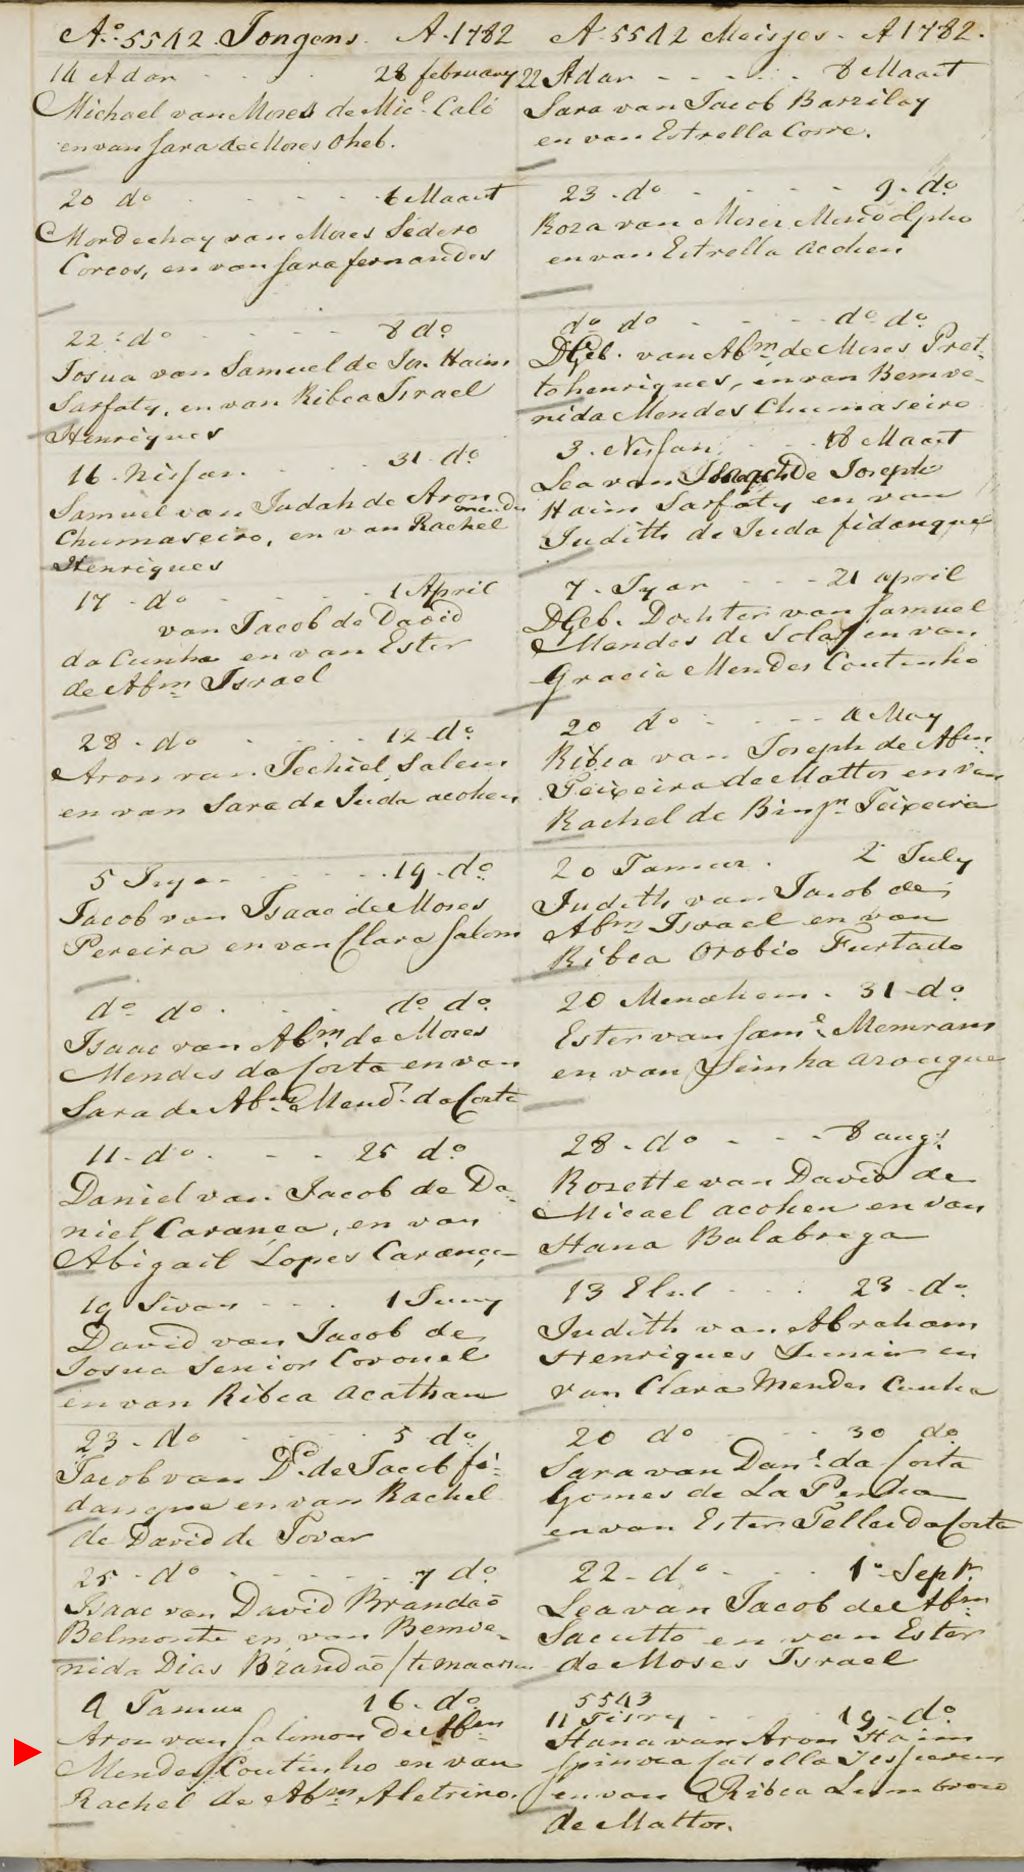 Aº 5542 Jongens. A. 1782
14 Adar - - - 28 february
Michael van Mozes de Micl. Caló
en van Sara de Mozes Oheb.
20 do - - - - 6 Maart
Mordechay van Mozes Sedero
Corcos, en van Sara fernandes
22 do - - - 8 do
Josua van Samuel de Jos. Haim
Sarfaty, en van Ribca Israel
Henriques
16. Nissan. - - - 31 do
Samuel van Judah de Aron
Chumaseiro, en van Rachel
Henriques
17 - do - - - - 1 April
van Jacob de David
da Cunha en van Ester
de Abm Israel
28 - do - - - - 12 do
Aron van Jechiel Salem
en van Sara de Juda acohen
5 Iyar - - - - 19 do
Jacob van Isaac de Mozes
Pereira en van Clara Salom
do do - - - do do
Isaac van Abm de Mozes
Mendes da Costa en van
Sara de Abm Mend. da Costa
11 - do - - - 25 do
Daniel van Jacob de Da-
niel Caranca, en van
Abigail Lopes Caranca
19 Sivan - - - 1 Juny
David van Jacob de
Josua Senior Coronel
en van Ribca acathan
23 - do - - - 5 do
Jacob van Dd. de Jacob fi-
danque en van Rachel
de David de Tovar
25 - do - - - - 7 do
Isaac van David Brandaõ
Belmonte en van Bemve-
nida Dias Brandaõ / te maarsen
4 Tamus 16 - do
Aron van Salimon de Abm
Mendes Coutinho en van
Rachel de Abm Aletrino.
A. 5542 Meisjes - A 1782.
22 Adar - - - - 8 Maart
Sara van Jacob Barzilay
en van Estrella Corre.
23 - do - - - - 9 - do
Roza van Mozes Mendolpho
en van Estrella acohen
do do - - - - do do
DGeb. van Abm de Mozes Pret-
to henriques, en van Bemve-
nida Mendes Chumaseiro
3. Nissan - - - 18 Maart
Lea van de Joseph
Haim Sarfaty en van
Judith de Juda fidanque
7. Iyar - - - 21 april
DGeb. Dochter van Samuel
Mendes de Sola, en van
Gracia Mendes Coutinho
20 do - - - - 4 May
Ribca van Joseph de Abm
Teixeira de Mattos en van
Rachel de Binjn Teixeira
20 Tamus. 2 July
Judith van Jacob de
Abm Israel en van
Ribca Orobio Furtado
20 Menachem. 31 do
Ester van Saml Memrans
en van Simha arougue
28 - do - - - 8 augt
Rozette van David de
Micael acohen en van
Hana Balabrega
13 Elul - - - 23 do
Judith van Abraham
Henriques Junior en
van Clara Mendes Cunha
20 do - - - 30 do
Sara van Danl da Costa
Gomes de La Penha
en van Ester Telles da Costa
22 - do - - - 1º Septr
Lea van Jacob de Abm
Sacutto en van Ester
de Moses Israel
5543
11 Tisry - - - 19 - do
Hana van Aron Haim
Spinoza Jesserun
en van Ribca Lumbrozo
de Mattos.